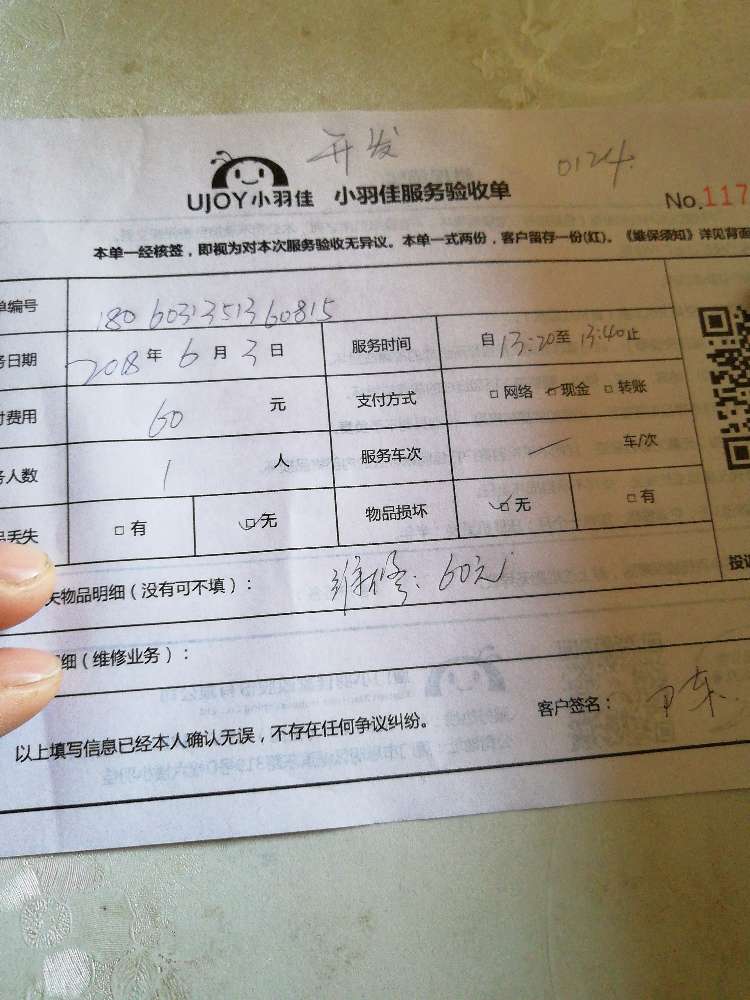 开发
0124
UJOY小羽佳 小羽佳服务验收单
No.117
本单一经核签，即视为对本次服务验收无异议。本单一式两份，客户留存一份(红)。《维保须知》详见背面
单编号 1806031351360815
务日期 2018年6月3日 服务时间 自13:20至13:40止
付费用 60 元 支付方式 □网络 ☑现金 □转账
务人数 1 人 服务车次 / 车/次
品丢失 □有 ☑无 物品损坏 ☑无 □有
失物品明细（没有可不填）： 维修：60元
细（维修业务）：
投诉
以上填写信息已经本人确认无误，不存在任何争议纠纷。 客户签名：